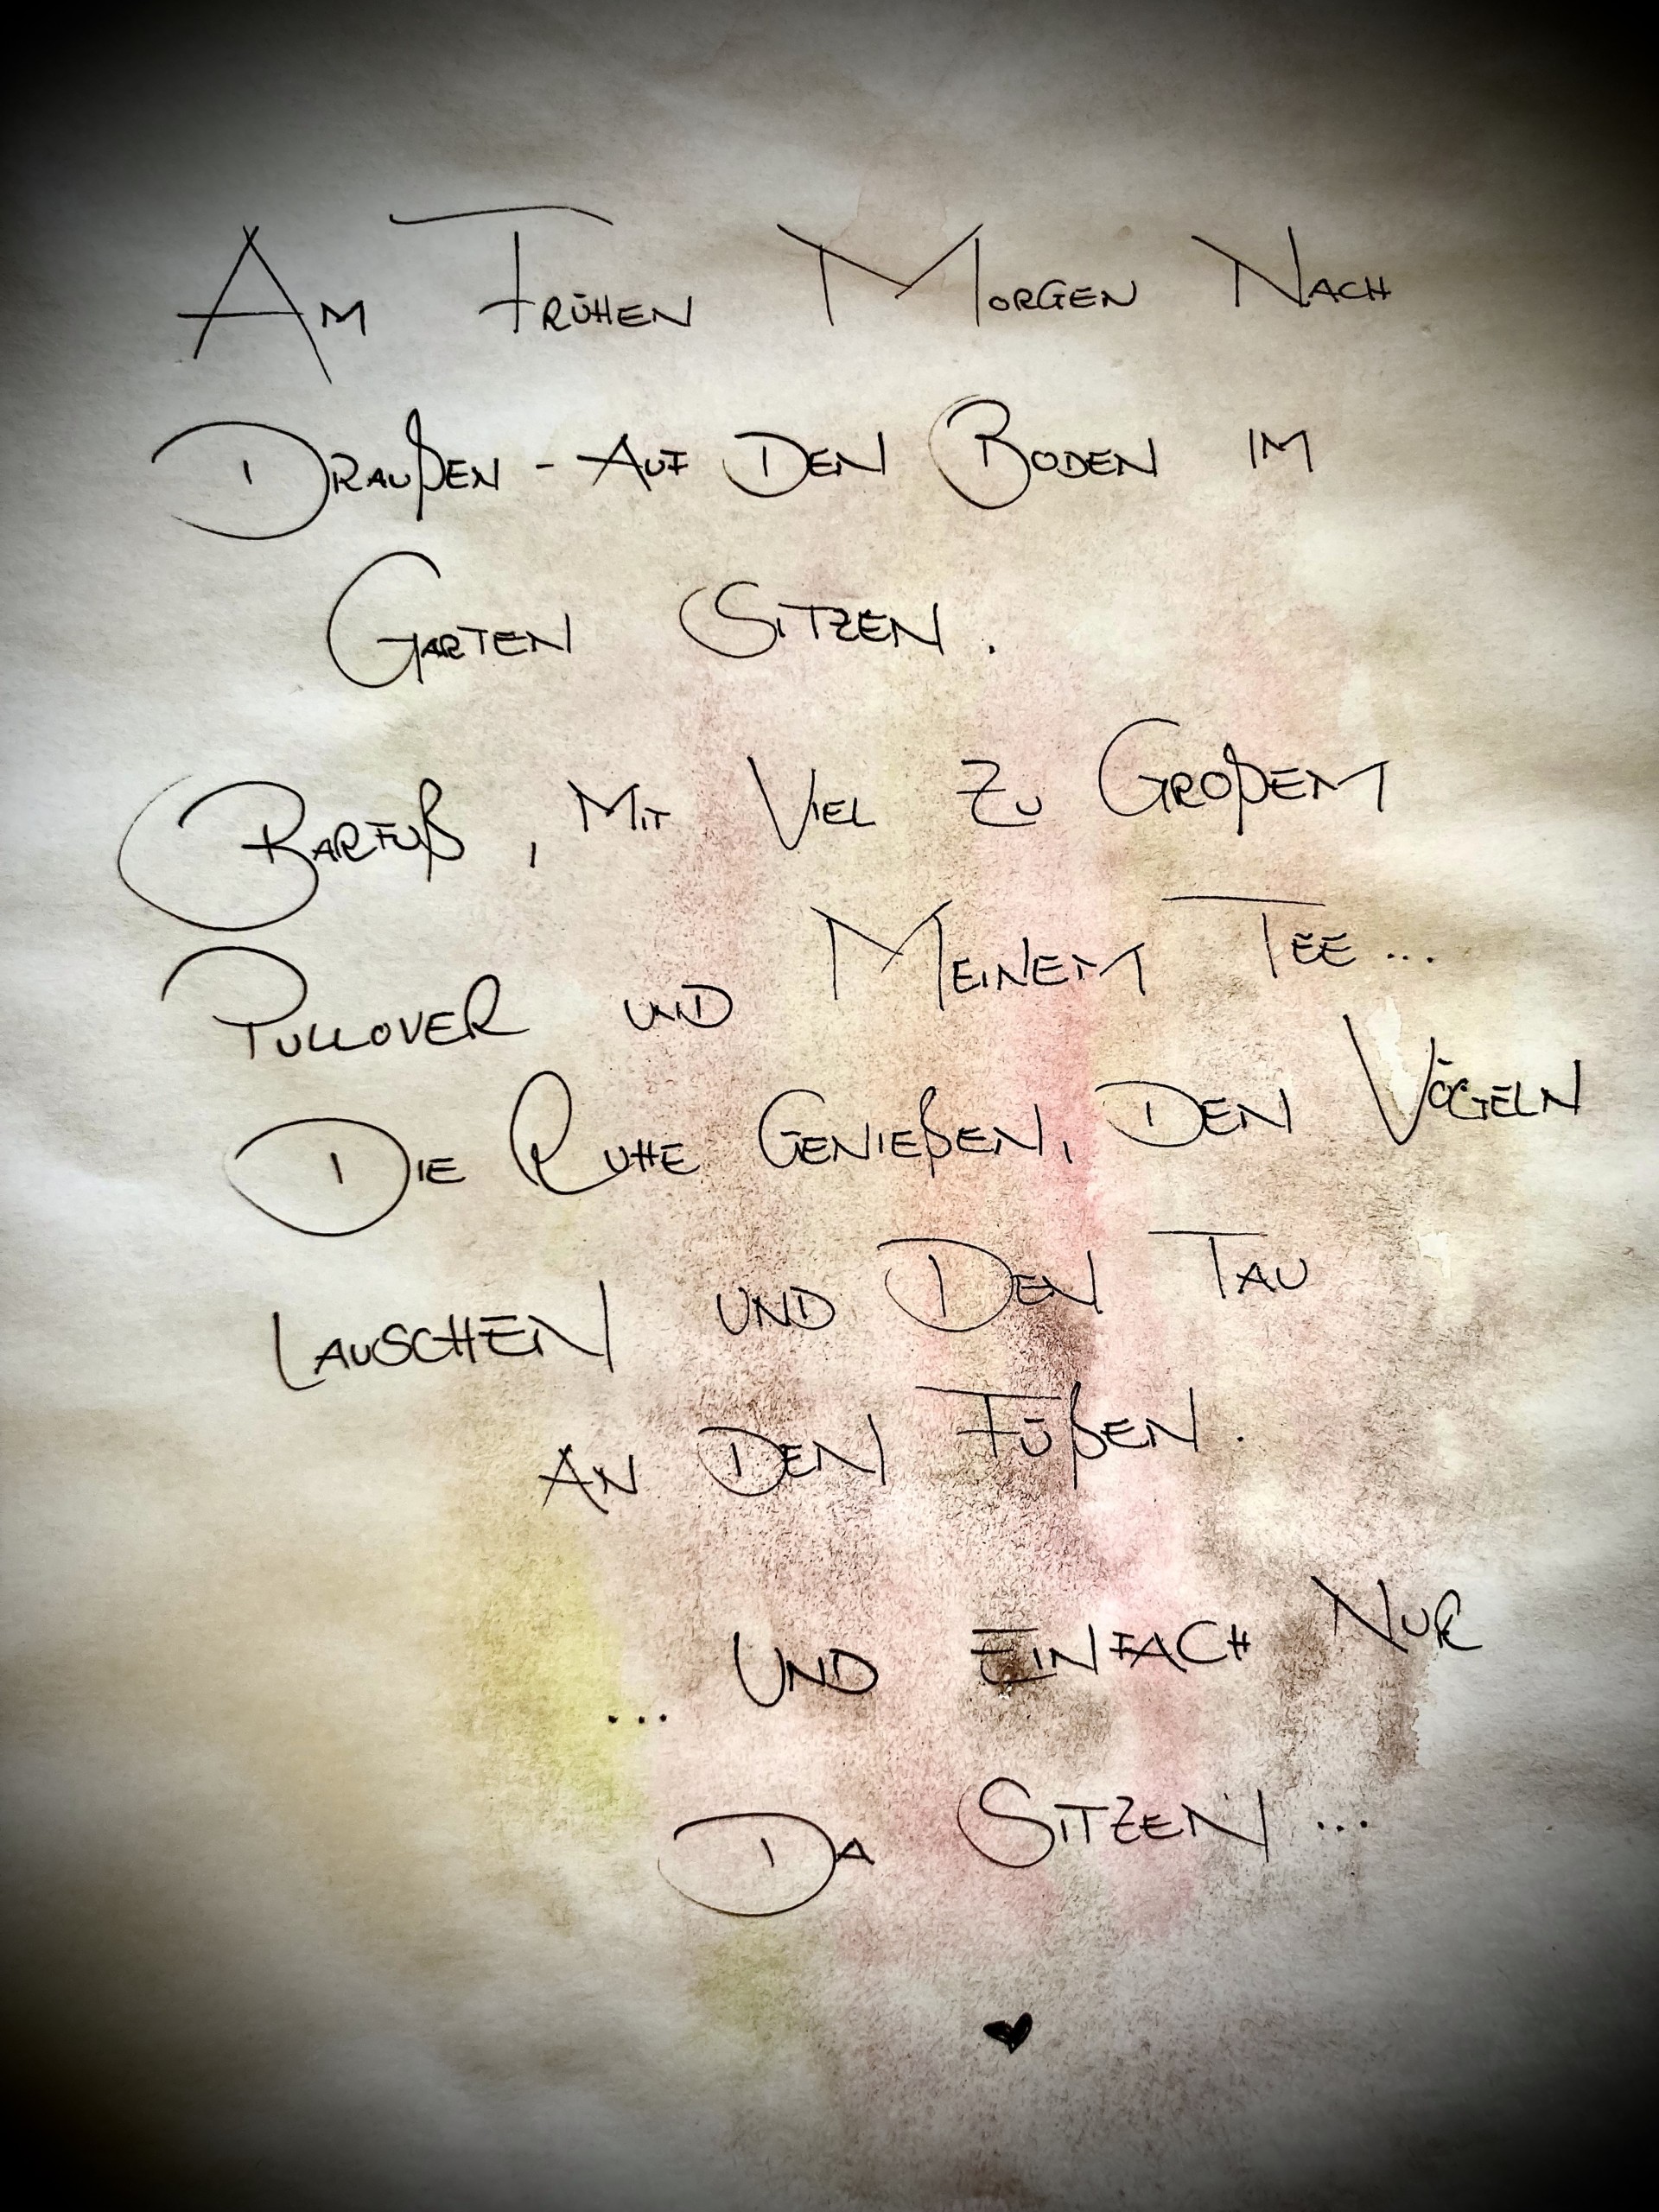 Am Frühen Morgen Nach
Draußen - Auf Den Boden im
Garten Sitzen.
Barfuß, Mit Viel Zu Großem
Pullover und Meinem Tee...
Die Ruhe Genießen, Den Vögeln
Lauschen und Den Tau
an Den Füßen.
... Und Einfach Nur
Da Sitzen...
♥